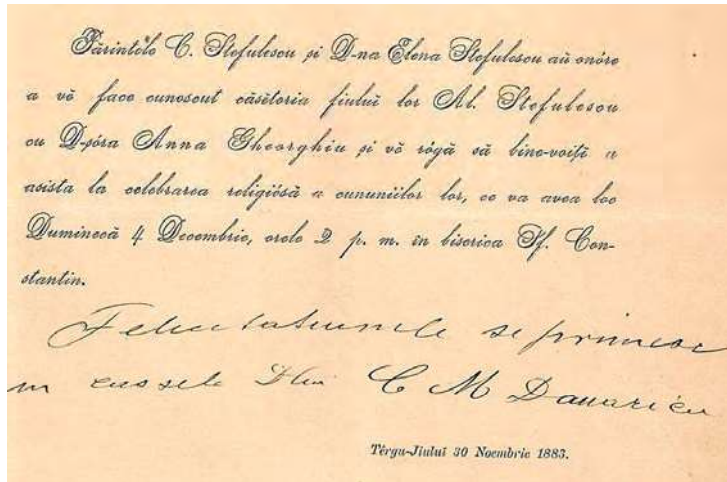 Părintele C. Stefulescu și D-na Elena Stefulescu aŭ onóre
a vĕ face cunoscut căsĕtoria fiuluĭ lor Al. Stefulescu
cu D-șóra Anna Gheorghiu și vĕ rógă să bine-voițĭ a
asista la celebrarea religiósă a cununiilor lor, ce va avea loc
Duminecă 4 Decembrie, orele 2 p. m. în biserica Sf. Con-
stantin.
Felicitatiunile se primesc
in casele Dlui C M
Térgu-Jiuluĭ 30 Noembrie 1883.